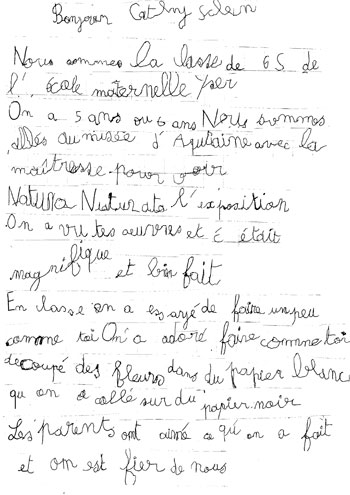 Bonjour Cathy Sclein
Nous sommes la lasse de GS de
l'école maternelle Yser
On a 5 ans ou 6 ans Nous sommes
allés au musée d'Aquitaine avec la
maîtresse pour voir
Natura Nuturata l'exposition
On a vu tes œuvres et c était
magnifique et bin fait
En lasse on a essayé de faire un peu
comme toi On a adoré faire comme toi
decoupé des fleurs dans du papier blanc
qu on a collé sur du papier noir
Les parents ont aimé ce qu on a fait
et on est fier de nous